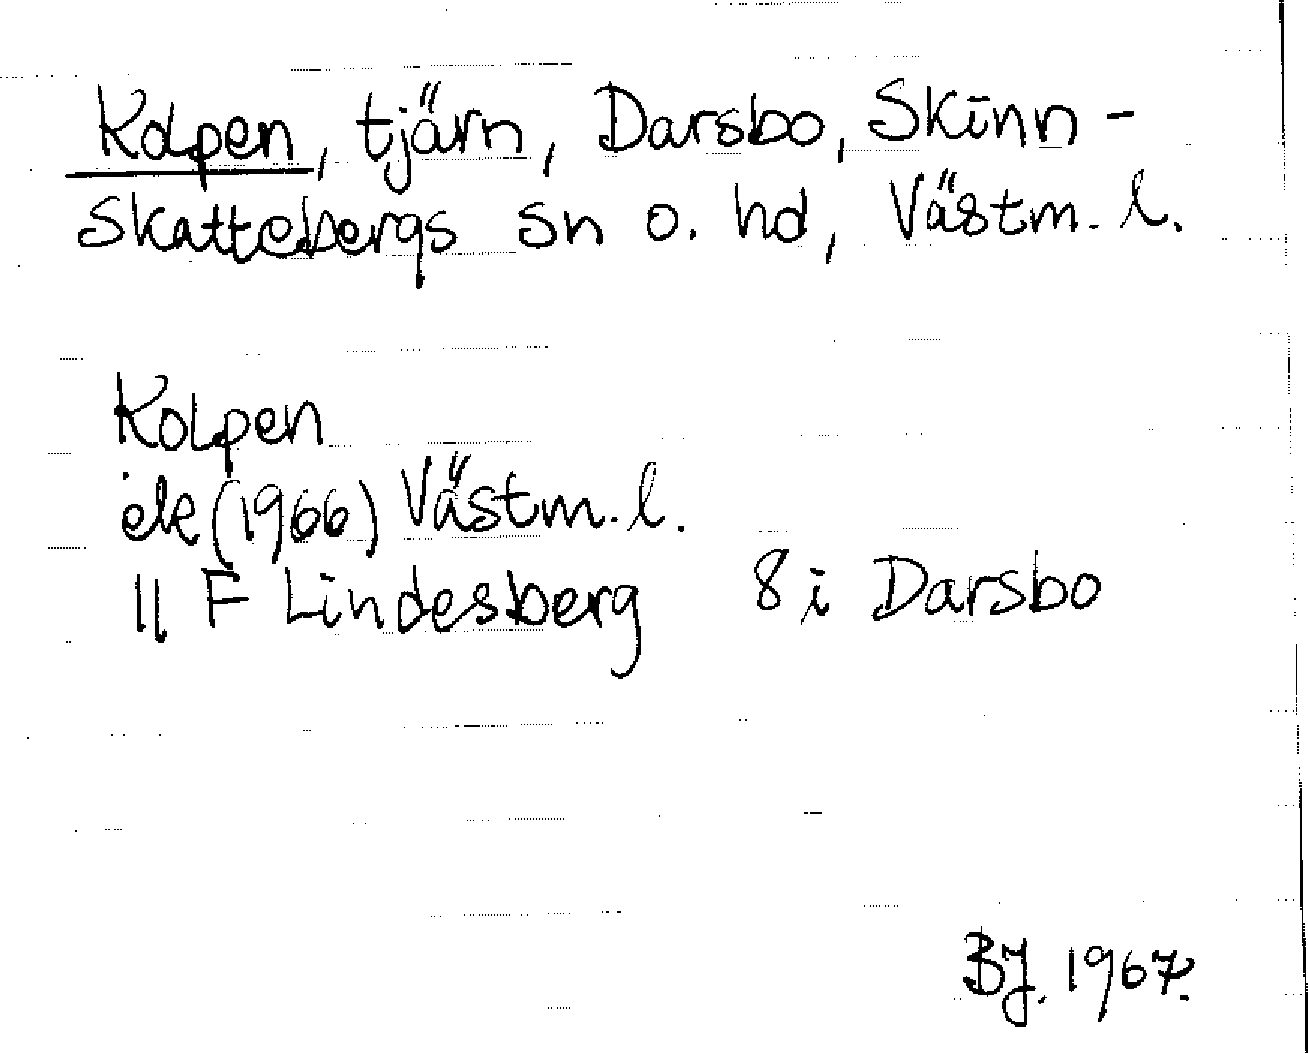 Kolpen, tjärn, Darsbo, Skinn-
skattebergs sn o. hd, Västm. l.
Kolpen
ek (1966) Västm. l.
11 F Lindesberg 8 i Darsbo
BJ. 1967.